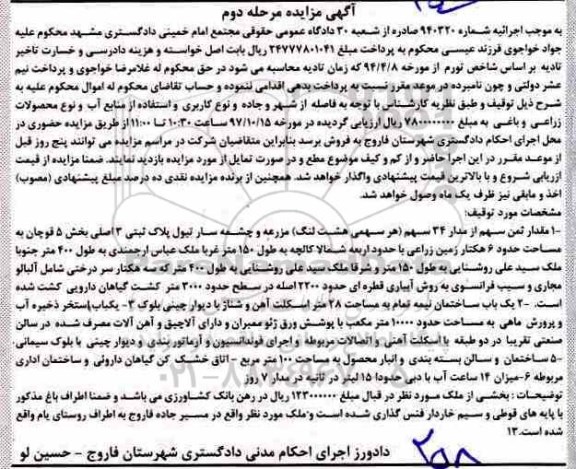 آگهی مزایده مرحله دوم
به موجب اجرائیه شماره ۹۴۰۳۲۰ صادره از شعبه ۳۰ دادگاه عمومی حقوقی مجتمع امام خمینی دادگستری مشهد محکوم علیه
جواد خواجوی فرزند عیسی محکوم به پرداخت مبلغ ۲۴۷۷۷۸۰۱۰۴۱ ریال بابت اصل خواسته و هزینه دادرسی و خسارت تاخیر
تادیه بر اساس شاخص تورم از مورخه ۹۴/۴/۸ که زمان تادیه محاسبه می شود در حق محکوم له غلامرضا خواجوی و پرداخت نیم
عشر دولتی و چون نامبرده در موعد مقرر نسبت به پرداخت بدهی اقدامی ننموده و حساب تقاضای محکوم له اموال محکوم علیه به
شرح ذیل توقیف و طبق نظریه کارشناس با توجه به فاصله از شهر و جاده و نوع کاربری و استفاده از منابع آب و نوع محصولات
زراعی و باغی به مبلغ ۷۸۰۰۰۰۰۰۰۰ ریال ارزیابی گردیده در مورخه ۹۷/۱۰/۱۵ ساعت ۱۰:۳۰ تا ۱۱:۰۰ از طریق مزایده حضوری در
محل اجرای احکام دادگستری شهرستان فاروج به فروش برسد بنابراین متقاضیان شرکت در مراسم مزایده می توانند پنج روز قبل
از موعد مقرر در این اجرا حاضر و از کم و کیف موضوع مطلع و در صورت تمایل از مورد مزایده بازدید نمایند. ضمنا مزایده از قیمت
ارزیابی شروع و با بالاترین قیمت پیشنهادی واگذار خواهد شد. همچنین از برنده مزایده نقدی ده درصد مبلغ پیشنهادی (مصوب)
اخذ و مابقی نیز ظرف یک ماه وصول خواهد شد.
مشخصات مورد توقیف:
۱- مقدار ثمن سهم از مدار ۳۴ سهم (هر سهمی هشت لنگ) مزرعه و چشمه سار تیول پلاک ثبتی ۳ اصلی بخش ۵ قوچان به
مساحت حدود ۶ هکتار زمین زراعی با حدود اربعه شمالا کالچه به طول ۱۵۰ متر غربا ملک عباس ارجمندی به طول ۴۰۰ متر جنوبا
ملک سید علی روشنایی به طول ۱۵۰ متر و شرقا ملک سید علی روشنایی به طول ۴۰۰ متر که سه هکتار سر درختی شامل آلبالو
مجاری و سیب فرانسوی به روش آبیاری قطره ای حدود ۲۲۰۰ اصله در سطح حدود ۳۰۰۰ متر کشت گیاهان دارویی کشت شده
است. ۲- یک باب ساختمان نیمه تمام به مساحت ۲۸ متر اسکلت آهن و شناژ با دیوار چینی بلوک ۳- یکباب استخر ذخیره آب
و پرورش ماهی به مساحت حدود ۱۰۰۰۰ متر مکعب با پوشش ورق ژئو ممبران و دارای آلاچیق و آهن آلات مصرف شده در سالن
صنعتی تقریبا در دو طبقه با اسکلت آهنی و اتصالات مربوطه و اجرای فونداسیون و آرماتور بندی و دیوار چینی با بلوک سیمانی.
۵- ساختمان و سالن بسته بندی و انبار محصول به مساحت ۱۰۰ متر مربع - اتاق خشک کن گیاهان داروئی و ساختمان اداری
مربوطه ۶- میزان ۱۴ ساعت آب با دبی حدودا ۱۵ لیتر در ثانیه در مدار ۷ روز
توضیحات: بخشی از ملک مورد نظر در قبال مبلغ ۱۲۳۰۰۰۰۰۰ ریال در رهن بانک کشاورزی می باشد و ضمنا اطراف باغ مذکور
با پایه های قوطی و سیم خاردار فنس گذاری شده است و ملک مورد نظر واقع در مسیر جاده فاروج به اطراف روستای یام واقع
شده است.۱۳
دادورز اجرای احکام مدنی دادگستری شهرستان فاروج - حسین لو
۲۵۸
۰۲۱-۸۸۳۴۹۶۷۰-۵